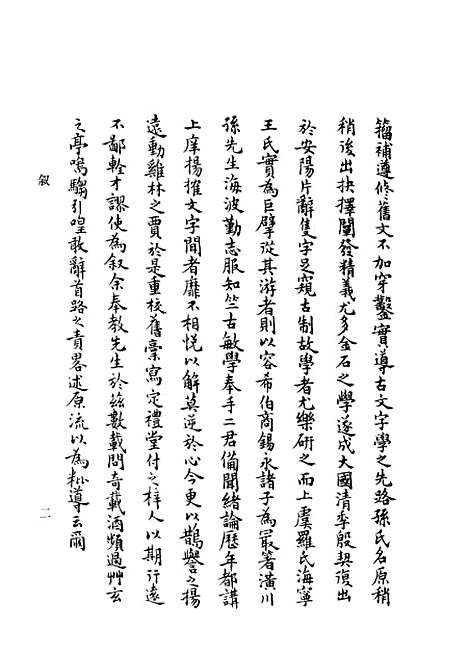 籀補遵修舊文不加穿鑿實導古文字學之先路孫氏名原稍
稍後出抉擇闡發精義尤多金石之學遂成大國清季殷契復出
於安陽片辭隻字足窺古制故學者尤樂研之而上虞羅氏海寧
王氏實為巨擘從其游者則以容希伯商錫永諸子為最著潢川
孫先生海波勤志服知竺古敏學奉手二君備聞緒論歷年都講
上庠揚搉文字聞者靡不相悅以解莫逆於心今更以鵲譽之揚
遠動雞林之賈於是重校舊稾寫定禮堂付之梓人以期行遠
不鄙輇才謬使為叙余奉教先生於茲數載問奇載酒頻過艸玄
之亭鳴騶引喤敢辭首路之責畧述原流以為紖導云爾
叙
二